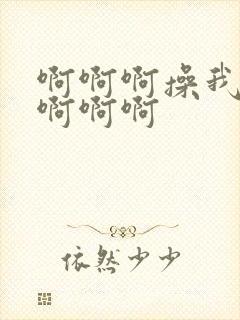 啊啊啊操我
啊啊啊
依然少少